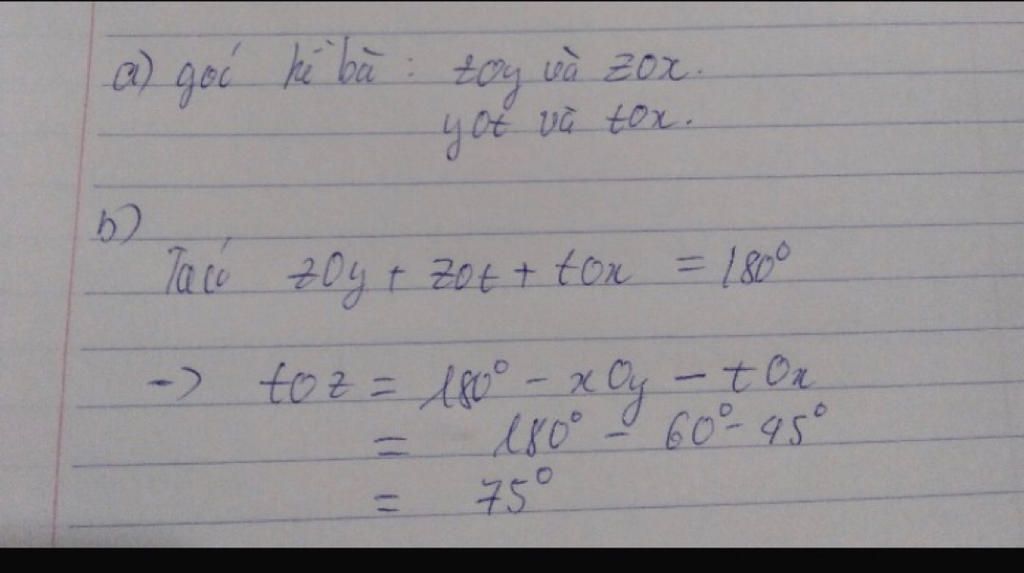 a) góc kề bù : zOy và zOx.
yOt và tOx.
b)
Ta có zOy + zOt + tOx = 180°
-> tOz = 180° - xOy - tOx
= 180° - 60° - 45°
= 75°